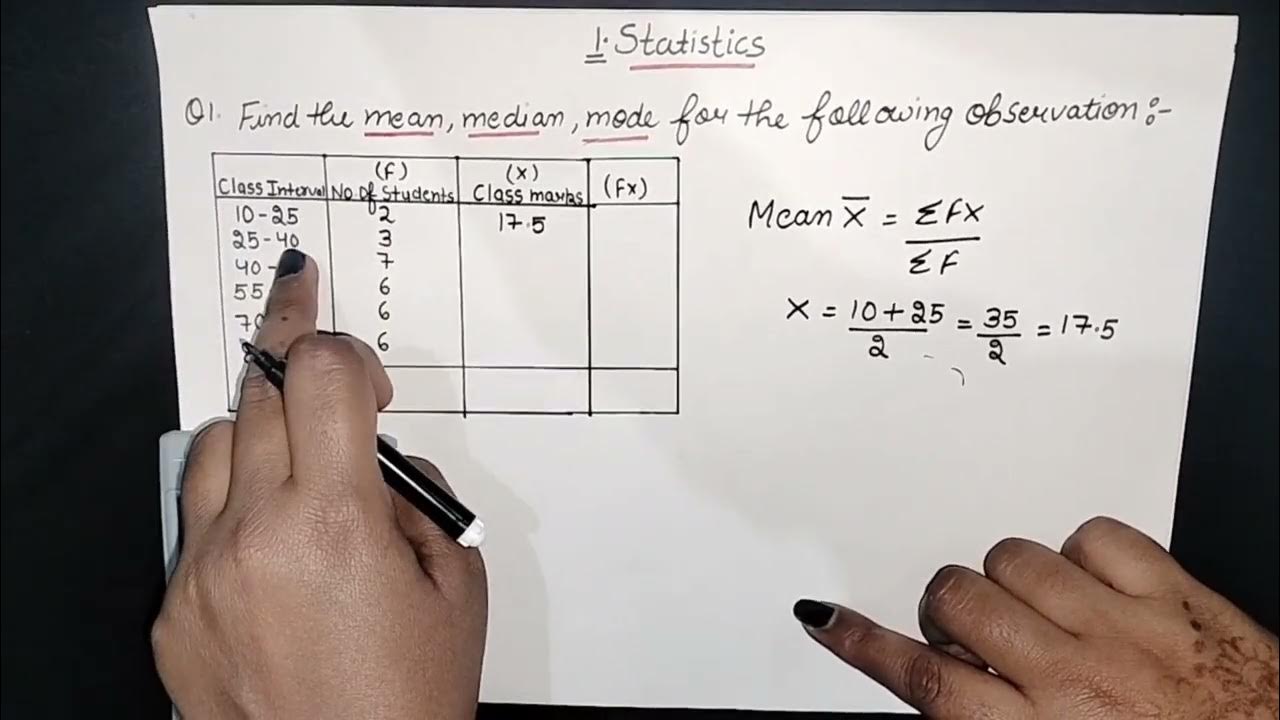 1. Statistics
Q1. Find the mean, median, mode for the following observation :-
Class Interval (F) No. Of Students (X) Class marks (Fx)
10-25 2 17.5
25-40 3
40- 7
55 6
70 6
6
Mean X̅ = ΣFX / ΣF
X = 10+25 / 2 = 35 / 2 = 17.5